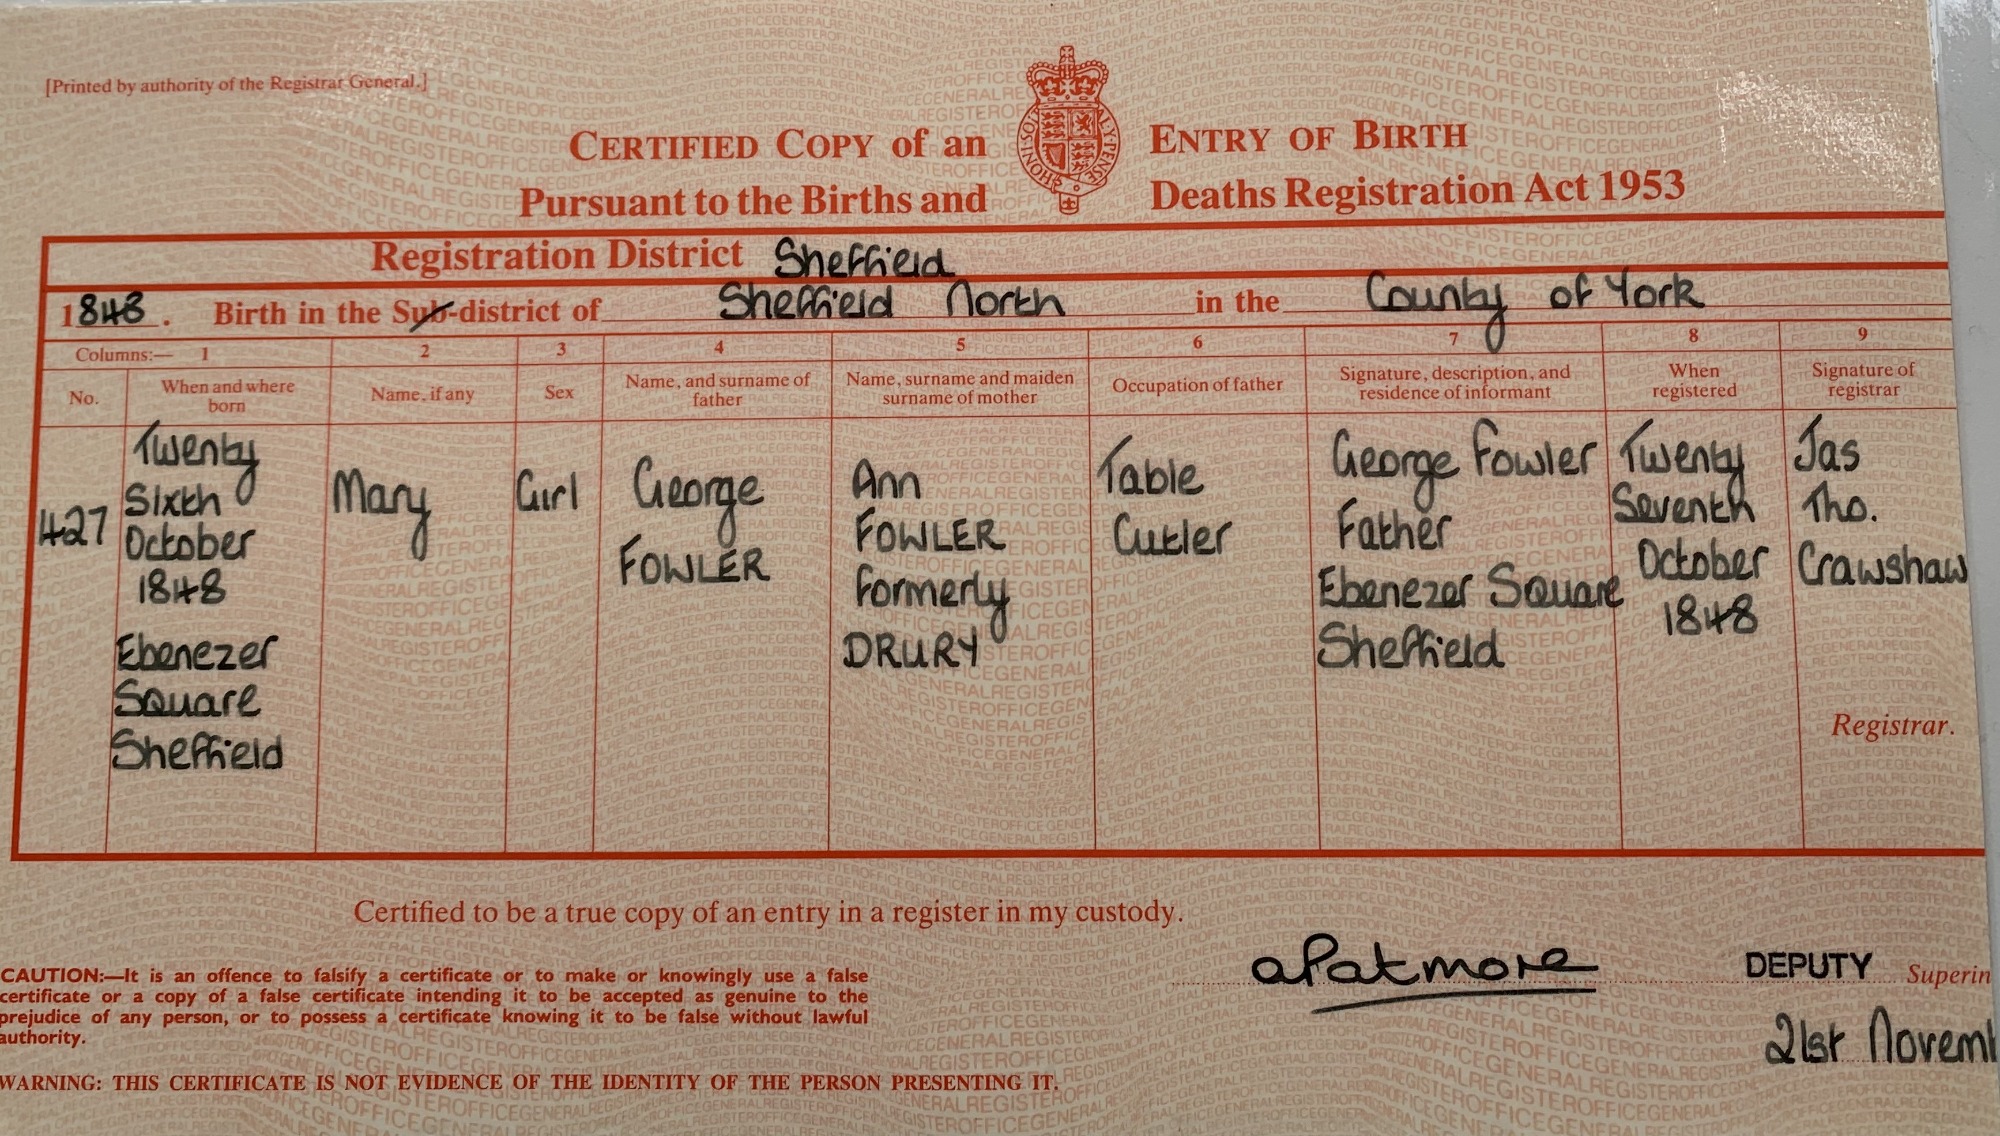 [Printed by authority of the Registrar General.]
CERTIFIED COPY of an ENTRY OF BIRTH
Pursuant to the Births and Deaths Registration Act 1953
Registration District Sheffield
1848. Birth in the Sub-district of Sheffield North in the County of York
Columns:— 1 2 3 4 5 6 7 8 9
No.
When and where
born
Name, if any
Sex
Name, and surname of
father
Name, surname and maiden
surname of mother
Occupation of father
Signature, description, and
residence of informant
When
registered
Signature of
registrar
427
Twenty
Sixth
October
1848
Ebenezer
Square
Sheffield
Mary
Girl
George
FOWLER
Ann
FOWLER
formerly
DRURY
Table
Cutler
George Fowler
Father
Ebenezer Square
Sheffield
Twenty
Seventh
October
1848
Jas
Tho.
Crawshaw
Registrar.
Certified to be a true copy of an entry in a register in my custody.
CAUTION:—It is an offence to falsify a certificate or to make or knowingly use a false
certificate or a copy of a false certificate intending it to be accepted as genuine to the
prejudice of any person, or to possess a certificate knowing it to be false without lawful
authority.
WARNING: THIS CERTIFICATE IS NOT EVIDENCE OF THE IDENTITY OF THE PERSON PRESENTING IT.
aPatmore
DEPUTY Superin
21st Novem